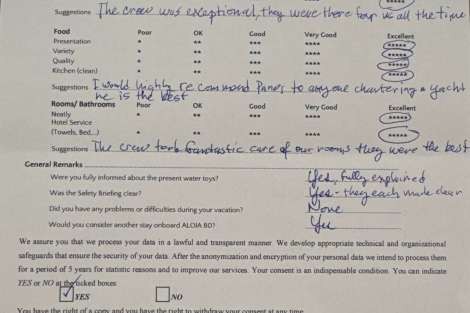 *****
Suggestions The crew was exceptional, they were there four us all the time
Food Poor OK Good Very Good Excellent
Presentation * ** *** **** *****
Variety * ** *** **** *****
Quality * ** *** **** *****
Kitchen (clean) * ** *** **** *****
Suggestions I would highly recommend Panos to anyone chartering a yacht
he is the best
Rooms/ Bathrooms Poor OK Good Very Good Excellent
Neatly * ** *** **** *****
Hotel Service
(Towels, Bed...) * ** *** **** *****
Suggestions The crew took fandtastic care of our rooms they were the best
General Remarks
Were you fully informed about the present water toys? Yes, fully explained
Was the Safety Briefing clear? Yes - they each made clear
Did you have any problems or difficulties during your vacation? None
Would you consider another stay onboard ALOIA 80? Yes
We assure you that we process your data in a lawful and transparent manner. We develop appropriate technical and organizational
safeguards that ensure the security of your data. After the anonymization and encryption of your personal data we intend to process them
for a period of 5 years for statistic reasons and to improve our services. Your consent is an indispensable condition. You can indicate
YES or NO at the ticked boxes
YES NO
You have the right of a copy and you have the right to withdraw your consent at any time